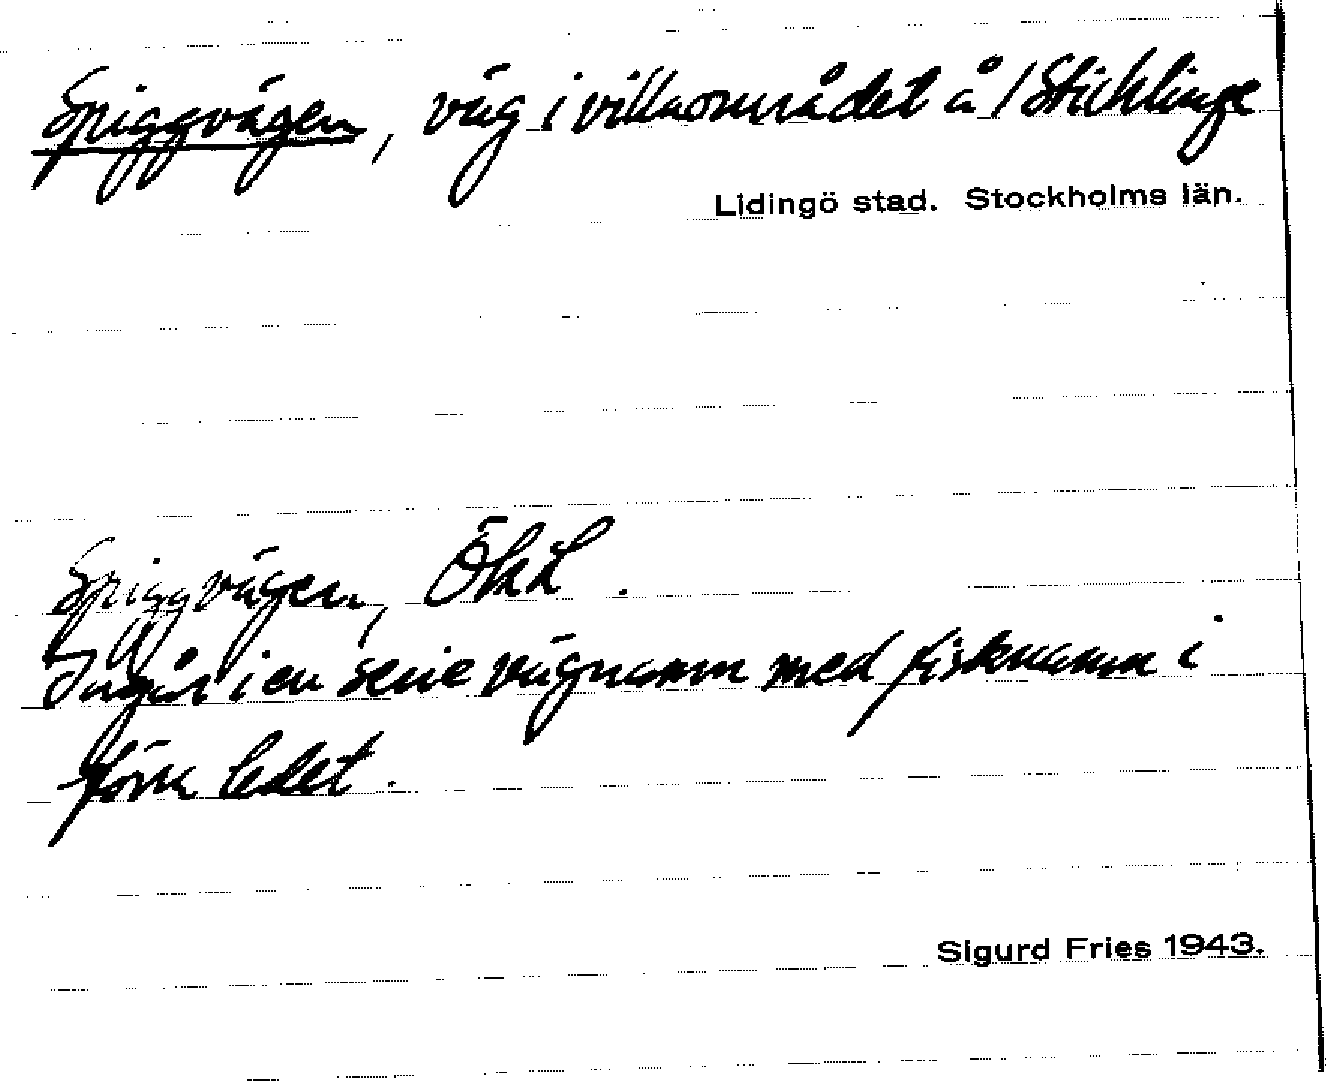 Spiggvägen, väg i villaområdet å / Stichlinge
Lidingö stad. Stockholms län.
Spiggvägen, ÖkL.
Ingår i en serie vägnamn med fisknamn i
förra ledet.
Sigurd Fries 1943.